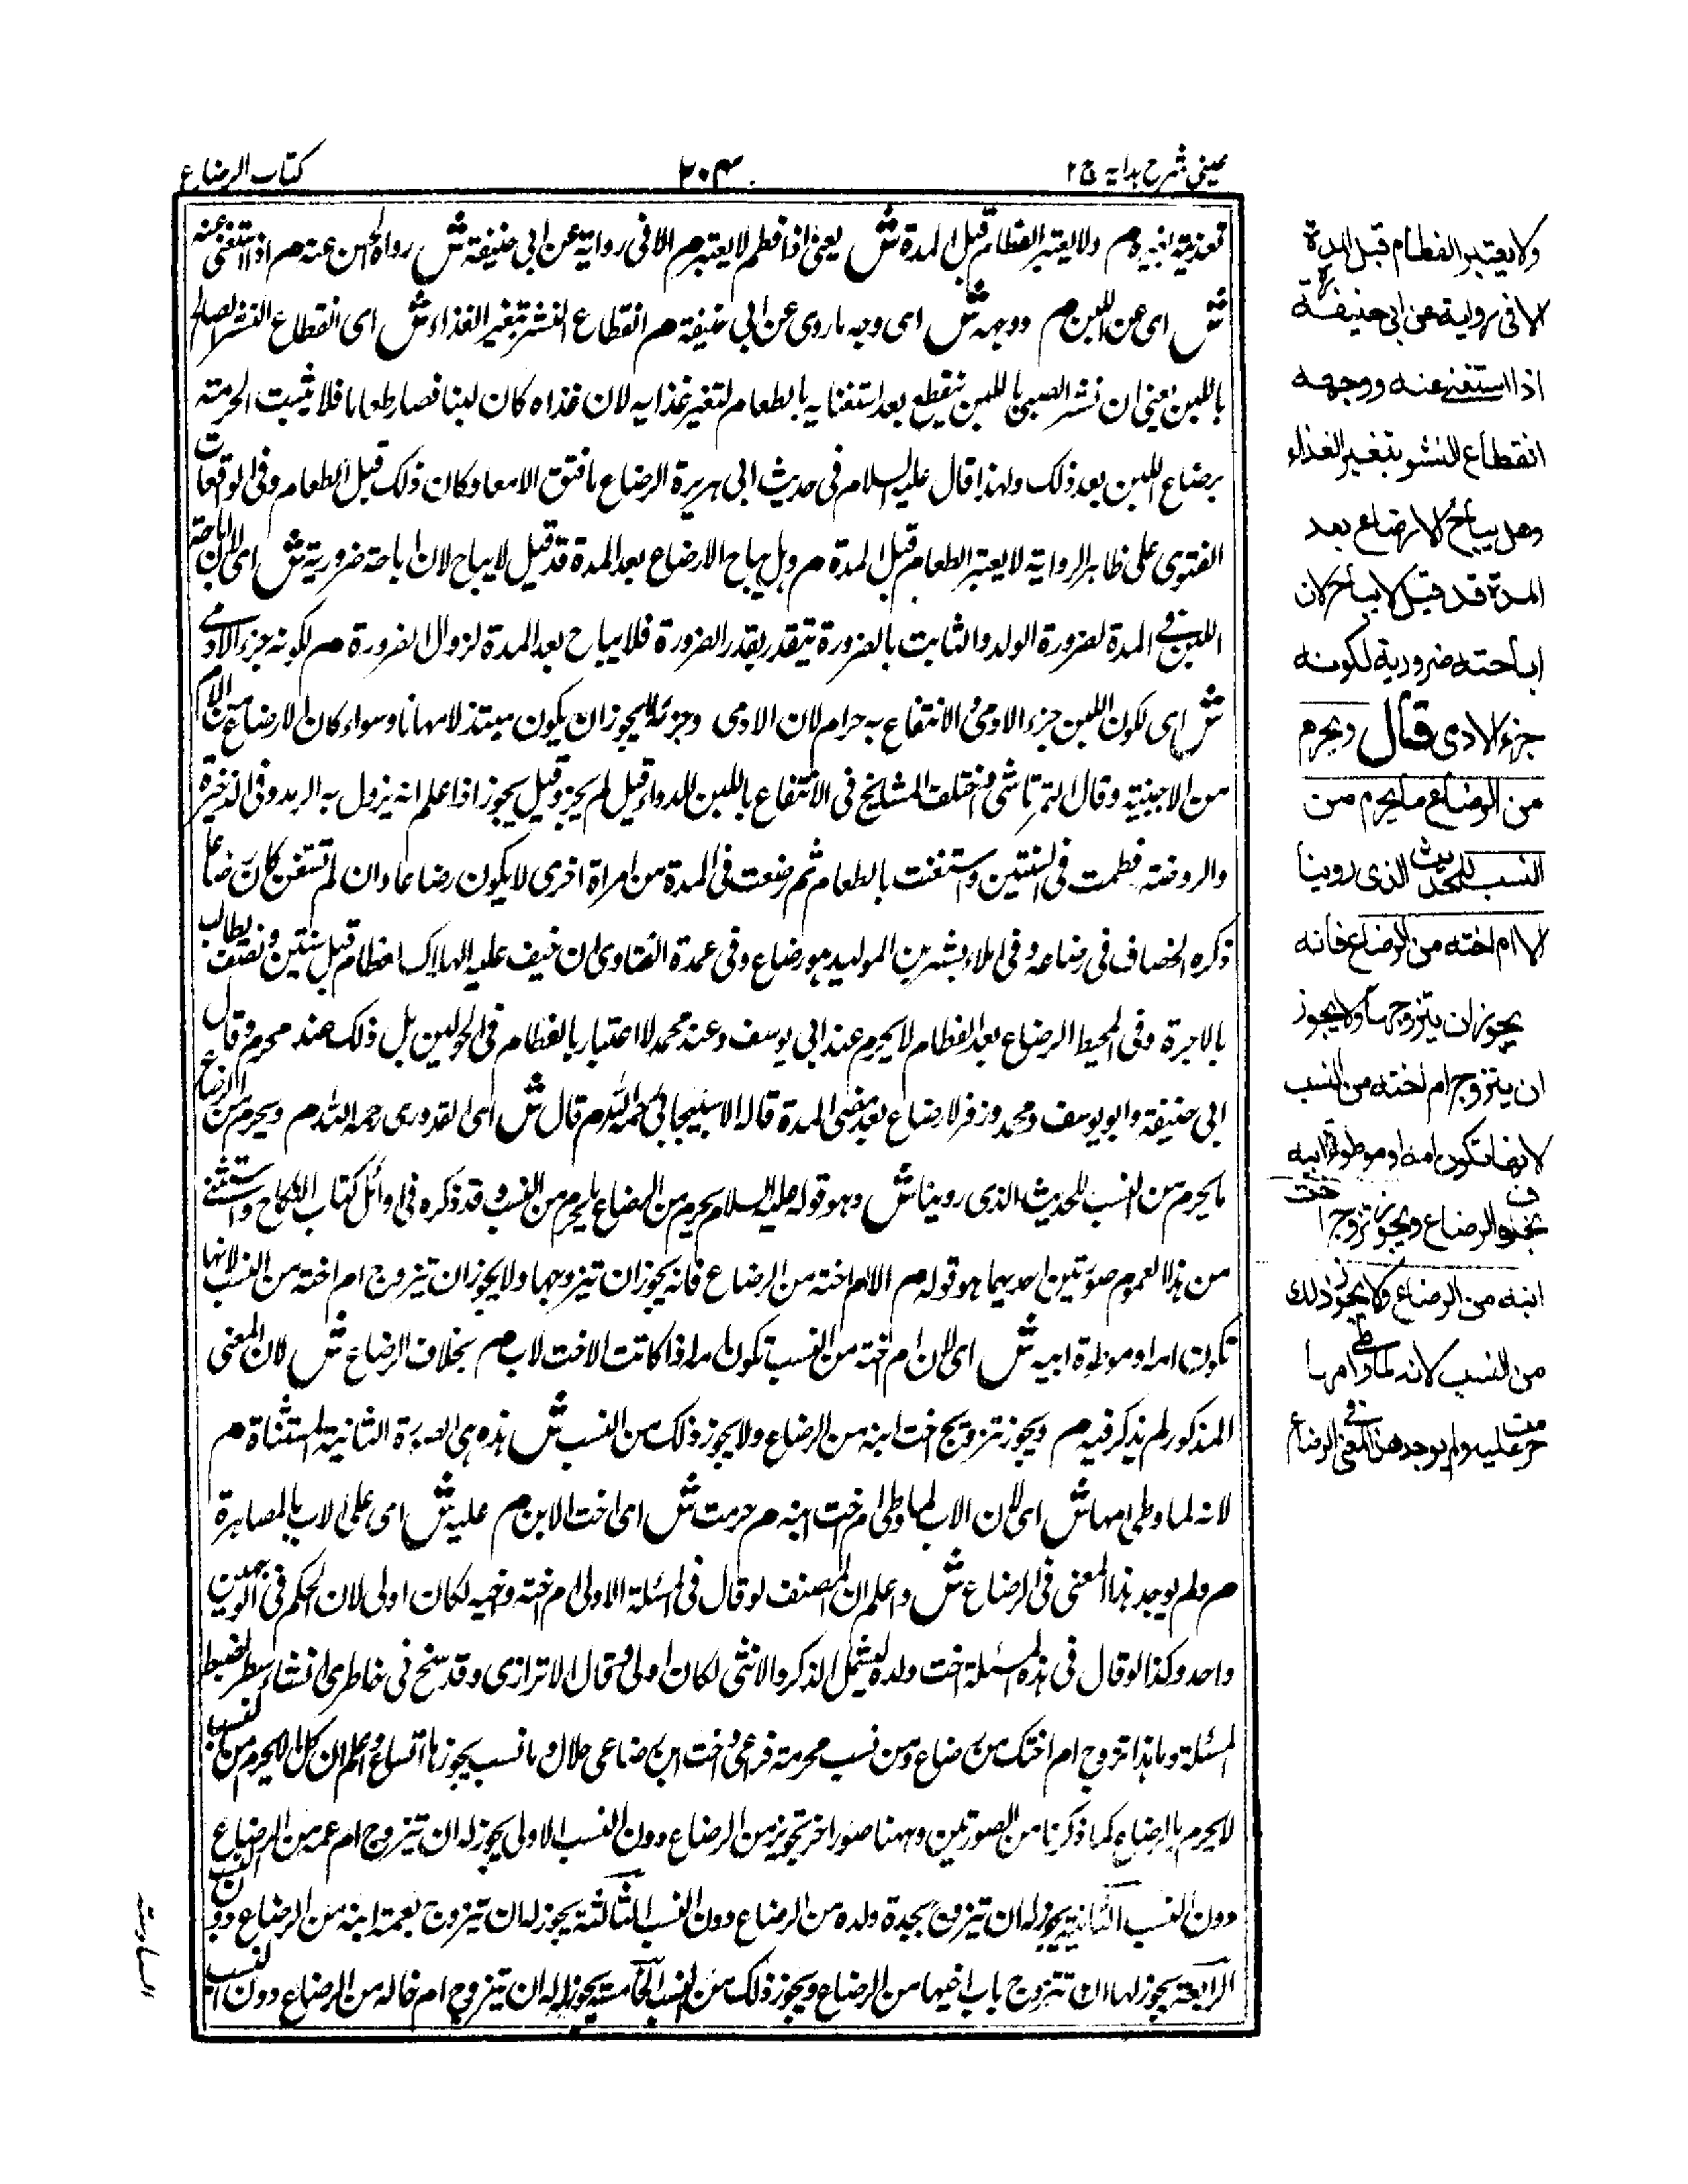 عینی شرح ہدایہ ج ۲
۲۰۴
کتاب الرضاع
تغذیة لغیره م ولا یعتبر الفطام قبل المدة ش یعنی اذا فطم لا یعتبر م الا فی روایة عن ابی حنیفة ش رواه الحسن عنه م اذا استغنی عنه
ش ای عن اللبن م ووجهه ش ای وجه ما روی عن ابی حنیفة م انقطاع النشو بتغیر الغذاء ش ای انقطاع النشو الصالح
باللبن یعنی ان نشو الصبی باللبن ینقطع بعد استغنایه بالطعام لتغیر غذایه لان غذاه کان لبنا فصار طعاما فلا یثبت الحرمة
برضاع اللبن بعد ذلک ولهذا قال علیه السلام فی حدیث ابی هریرة الرضاع ما فتق الامعا وکان ذلک قبل الطعام وفی الواقعات
الفتوی علی ظاهر الروایة لا یعتبر الطعام قبل المدة م وهل یباح الارضاع بعد المدة قد قیل لا یباح لان اباحة ضروریة ش ای لان اباحة
اللبن فی المدة لضرورة الولد والثابت بالضرورة یتقدر بقدر الضرورة فلا یباح بعد المدة لزوال الضرورة م لکونه جزء الآدمی
ش ای لکون اللبن جزء الادمی والانتفاع به حرام لان الادمی وجزئه لا یجوز ان یکون مبتذلا مهانا وسواء کان الارضاع من الام
من الاجنبیة وقال التمرتاشی واختلف المشایخ فی الانتفاع باللبن للدواء قیل لم یجز وقیل یجوز اذا علم انه یزول به الرمد وفی الذخیرة
والروضة فطمت فی السنتین واستغنت بالطعام ثم رضعت فی المدة من امراة اخری لا یکون رضاعا وان لم تستغن کان رضاعا
ذکره الخصاف فی رضاعه وفی املاء بشر بن الولید هو رضاع وفی عمدة الفتاوی ان خیف علیه الهلاک لفطام قبل سنتین ونصف یطالب
بالاجرة وفی المحیط الرضاع بعد الفطام لا یحرم عند ابی یوسف وعند محمد لا اعتبار بالفطام فی الحولین بل ذلک عنده محرم وقال
ابی حنیفة وابو یوسف ومحمد وزفر لا رضاع بعد مضی المدة قاله الاسبیجابی رحمه الله م قال ش ای القدوری رحمه الله م ویحرم من الرضاع
ما یحرم من النسب للحدیث الذی روینا ش وهو قوله علیه السلام یحرم من الرضاع ما یحرم من النسب وقد ذکره فی اوائل کتاب النکاح واستثنی
من هذا العموم صورتین احدیهما هو قوله م الا ام اخته من الرضاع فانه یجوز ان تیزوجها ولا یجوز ان تیزوج ام اخته من النسب لانها
تکون امه او موطوءة ابیه ش ای لان ام اخته من النسب تکون امه اذا کانت الاخت لاب م بخلاف الرضاع ش لان المعنی
المذکور لم یذکر فیه م ویجوز تزویج اخت ابنه من الرضاع ولا یجوز ذلک من النسب ش هذه هی الصورة الثانیة المستثناة م
لانه لما وطی امها ش ای لان الاب لما وطی ام اخت ابنه م حرمت ش ای اخت الابن م علیه ش ای علی الاب بالمصاهرة
م ولم یوجد هذا المعنی فی الرضاع ش واعلم ان المصنف لو قال فی المسئلة الاولی ام اخته واخیه لکان اولی لان الحکم فی الوجهین
واحد وکذا لو قال فی هذه المسئلة اخت ولده لیشمل الذکر والانثی لکان اولی وقال الاترازی وقد سنح فی خاطری انشاء سطر لضبط
المسئلة وها هذا تزوج ام اختک من رضاع ومن نسب محرمة فراعی واخت ابن رضاعی حلال وما نسب یجوزها اتساع واعلم ان کل ما لا یحرم من النسب
لا یحرم بالرضاع کما ذکرنا من الصورتین وههنا صور اخر تجوز من الرضاع دون النسب الاولی یجوز له ان تیزوج ام عمه من الرضاع
دون النسب الثانیة یجوز له ان تیزوج بجدة ولده من الرضاع دون النسب الثالثة یجوز له ان تیزوج بعمة ابنه من الرضاع دون النسب
الرابعة یجوز لها ان تتزوج باب اخیها من الرضاع ویجوز ذلک من النسب الخامسة یجوز له ان تیزوج ام خاله من الرضاع دون النسب
ولا یعتبر الفطام قبل المدة
الا فی روایة عن ابی حنیفة
اذا استغنی عنه ووجهه
انقطاع النشو بتغیر الغذاء
وهل یباح الارضاع بعد
المدة قد قیل لا یباح لان
اباحته ضروریة لکونه
جزء الادمی قال ویحرم
من الرضاع ما یحرم من
النسب للحدیث الذی روینا
الا ام اخته من الرضاع فانه
یجوز ان یتزوجها ولا یجوز
ان یتزوج ام اخته من النسب
لانها تکون امه او موطوءة ابیه
بخلاف الرضاع ویجوز تزوج اخت
ابنه من الرضاع ولا یجوز ذلك
من النسب لانه لما وطی امها
حرمت علیه ولم یوجد هذا المعنی فی الرضاع
السادسة